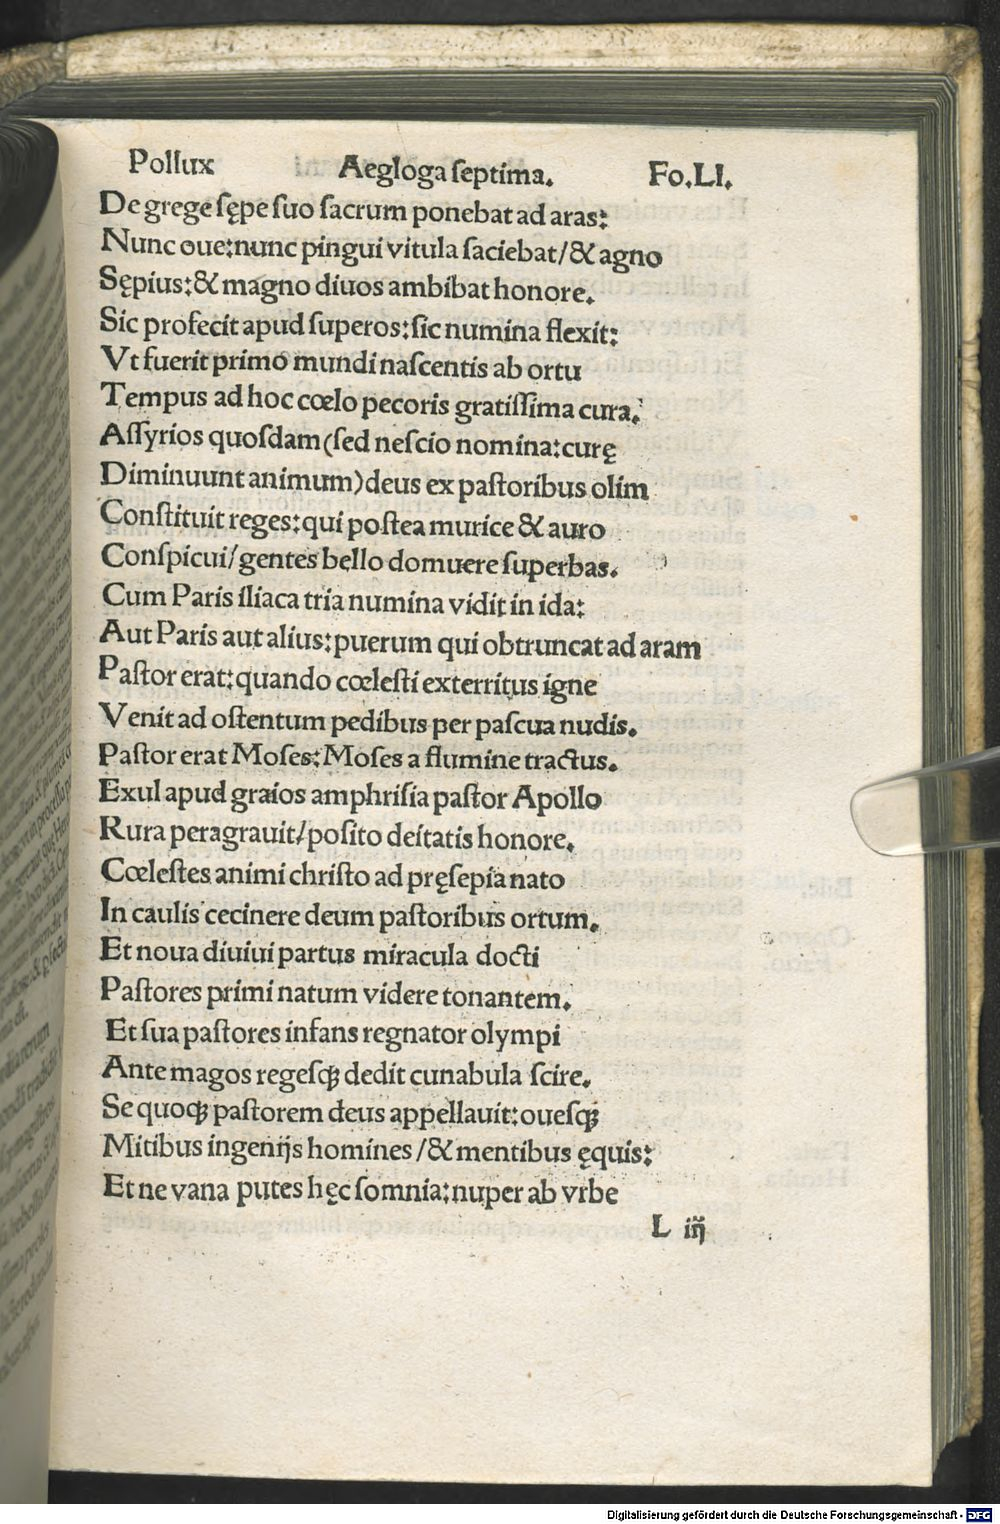 Pollux Aegloga ſeptima. Fo.LI.
De grege ſępe ſuo ſacrum ponebat ad aras:
Nunc oue:nunc pingui vitula faciebat/& agno
Sępius:& magno diuos ambibat honore.
Sic profecit apud ſuperos:ſic numina flexit:
Vt fuerit primo mundi naſcentis ab ortu
Tempus ad hoc cœlo pecoris gratiſſima cura.
Aſſyrios quoſdam(ſed neſcio nomina:curę
Diminuunt animum)deus ex paſtoribus olim
Conſtituit reges:qui poſtea murice & auro
Conſpicui/gentes bello domuere ſuperbas.
Cum Paris iliaca tria numina vidit in ida:
Aut Paris aut alius:puerum qui obtruncat ad aram
Paſtor erat:quando cœleſti exterritus igne
Venit ad oſtentum pedibus per paſcua nudis.
Paſtor erat Moſes:Moſes a flumine tractus.
Exul apud graios amphriſia paſtor Apollo
Rura peragrauit/poſito deitatis honore.
Cœleſtes animi chriſto ad pręſepia nato
In caulis cecinere deum paſtoribus ortum.
Et noua diuiui partus miracula docti
Paſtores primi natum videre tonantem.
Et ſua paſtores infans regnator olympi
Ante magos regeſqꝫ dedit cunabula ſcire.
Se quoqꝫ paſtorem deus appellauit:oueſqꝫ
Mitibus ingenijs homines/& mentibus ęquis:
Et ne vana putes hęc ſomnia:nuper ab vrbe
L iij
Digitalisierung gefördert durch die Deutsche Forschungsgemeinschaft - DFG